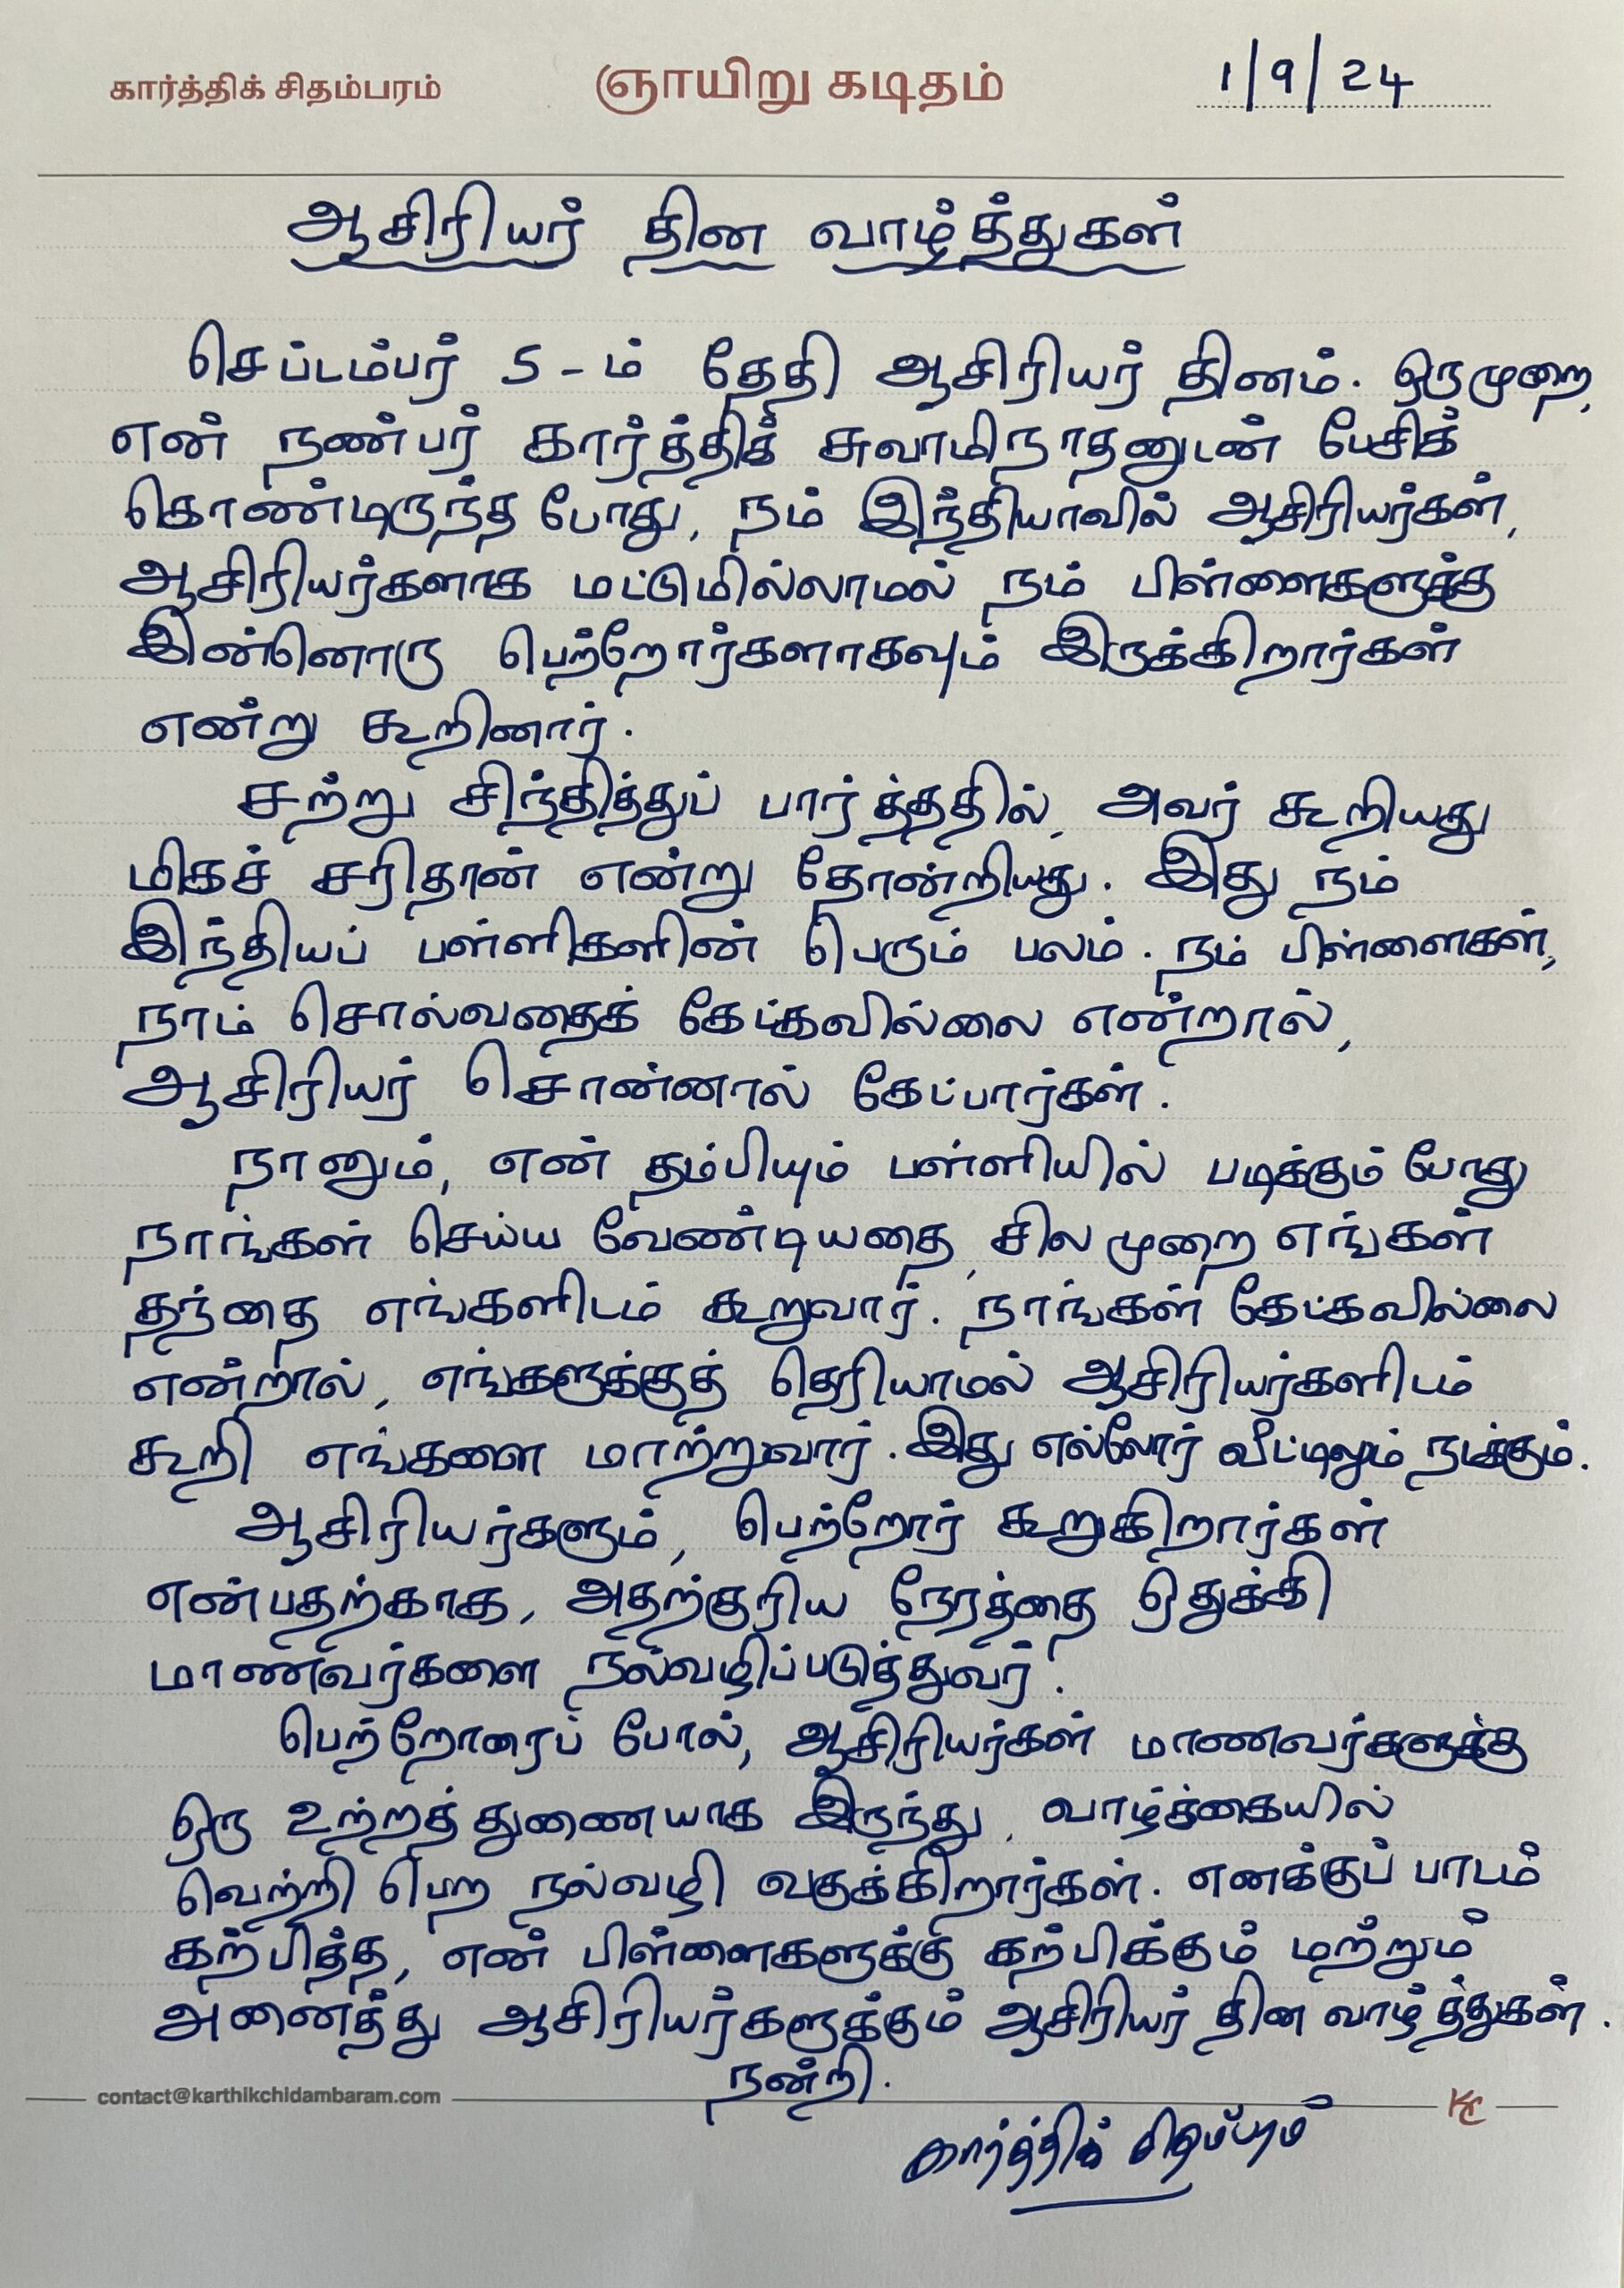 கார்த்திக் சிதம்பரம் ஞாயிறு கடிதம் 1/9/24
ஆசிரியர் தின வாழ்த்துகள்
செப்டம்பர் 5-ம் தேதி ஆசிரியர் தினம். ஒருமுறை,
என் நண்பர் கார்த்திக் சுவாமிநாதனுடன் பேசிக்
கொண்டிருந்த போது, நம் இந்தியாவில் ஆசிரியர்கள்,
ஆசிரியர்களாக மட்டுமில்லாமல் நம் பிள்ளைகளுக்கு
இன்னொரு பெற்றோர்களாகவும் இருக்கிறார்கள்
என்று கூறினார்.
சற்று சிந்தித்துப் பார்த்ததில், அவர் கூறியது
மிகச் சரிதான் என்று தோன்றியது. இது நம்
இந்தியப் பள்ளிகளின் பெரும் பலம். நம் பிள்ளைகள்,
நாம் சொல்வதைக் கேட்கவில்லை என்றால்,
ஆசிரியர் சொன்னால் கேட்பார்கள்.
நானும், என் தம்பியும் பள்ளியில் படிக்கும் போது
நாங்கள் செய்ய வேண்டியதை, சில முறை எங்கள்
தந்தை எங்களிடம் கூறுவார். நாங்கள் கேட்கவில்லை
என்றால், எங்களுக்குத் தெரியாமல் ஆசிரியர்களிடம்
கூறி எங்களை மாற்றுவார். இது எல்லோர் வீட்டிலும் நடக்கும்.
ஆசிரியர்களும், பெற்றோர் கூறுகிறார்கள்
என்பதற்காக, அதற்குரிய நேரத்தை ஒதுக்கி
மாணவர்களை நல்வழிப்படுத்துவர்.
பெற்றோரைப் போல், ஆசிரியர்கள் மாணவர்களுக்கு
ஒரு உற்றத் துணையாக இருந்து, வாழ்க்கையில்
வெற்றி பெற நல்வழி வகுக்கிறார்கள். எனக்குப் பாடம்
கற்பித்த, என் பிள்ளைகளுக்கு கற்பிக்கும் மற்றும்
அனைத்து ஆசிரியர்களுக்கும் ஆசிரியர் தின வாழ்த்துகள்.
நன்றி.
contact@karthikchidambaram.com KC
கார்த்திக் சிதம்பரம்